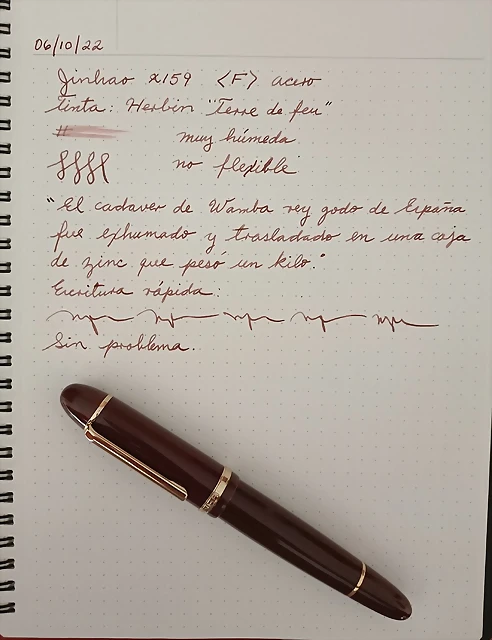 06/10/22
Jinhao x159 <F> acero
Tinta: Herbin "Terre de feu"
muy húmeda
no flexible
"El cadaver de Wamba rey godo de España
fue exhumado y trasladado en una caja
de zinc que pesó un kilo."
Escritura rápida:
Sin problema.